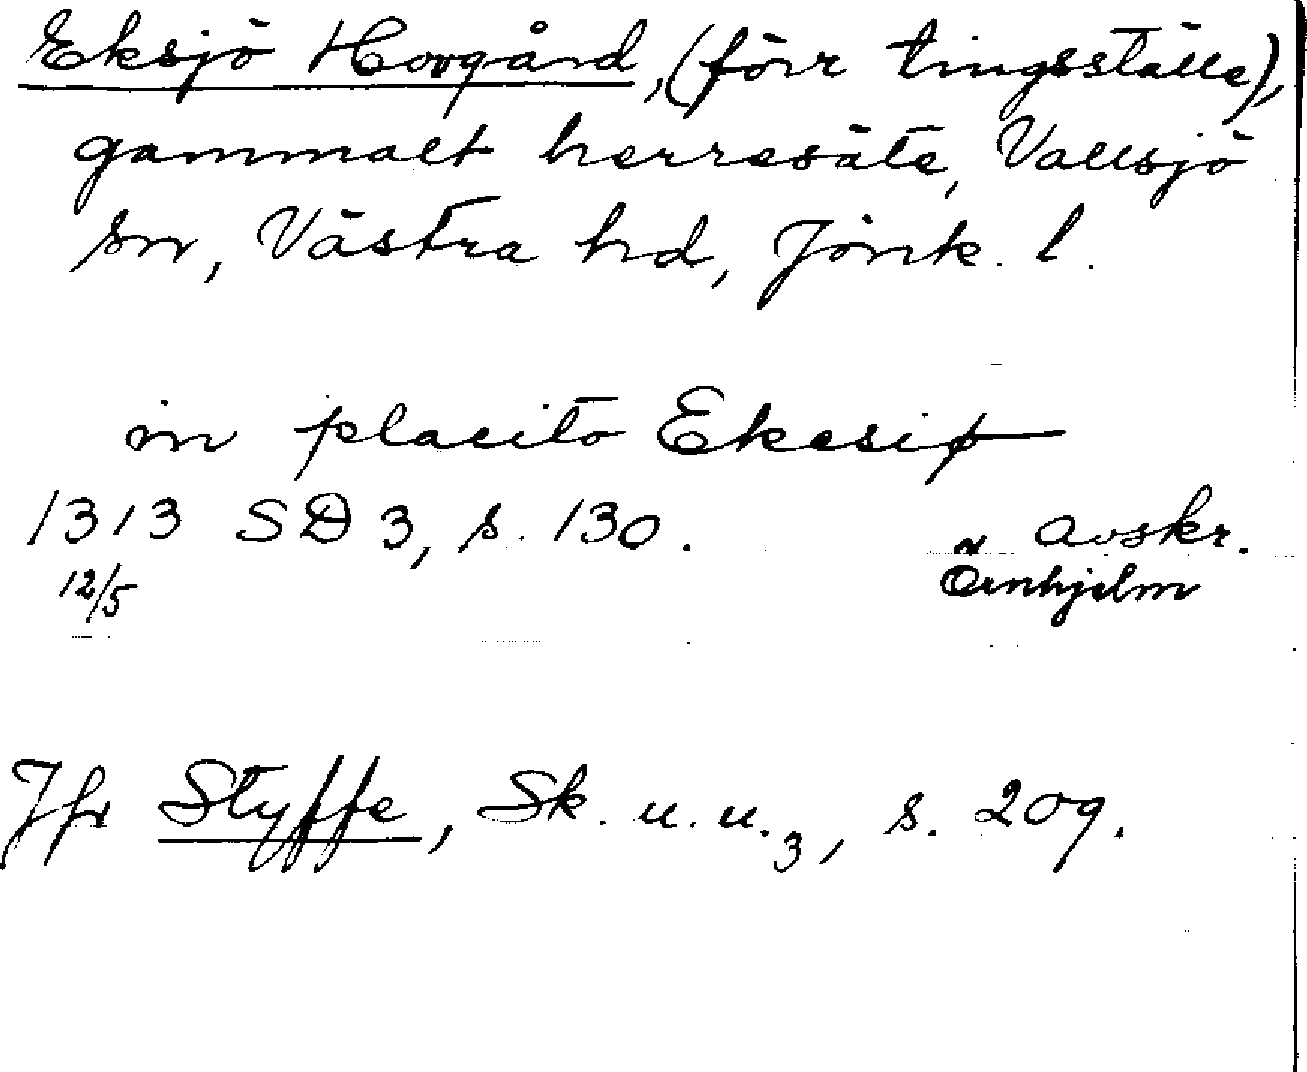 Eksjö Hovgård, (förr tingsställe),
gammalt herresäte, Vallsjö
sn, Västra hd, Jönk. l.
in placito Ekesiø
1313 SD 3, s. 130. avskr.
12/5 Örnhjelm
Jfr Styffe, Sk. u. u. 3, s. 209.